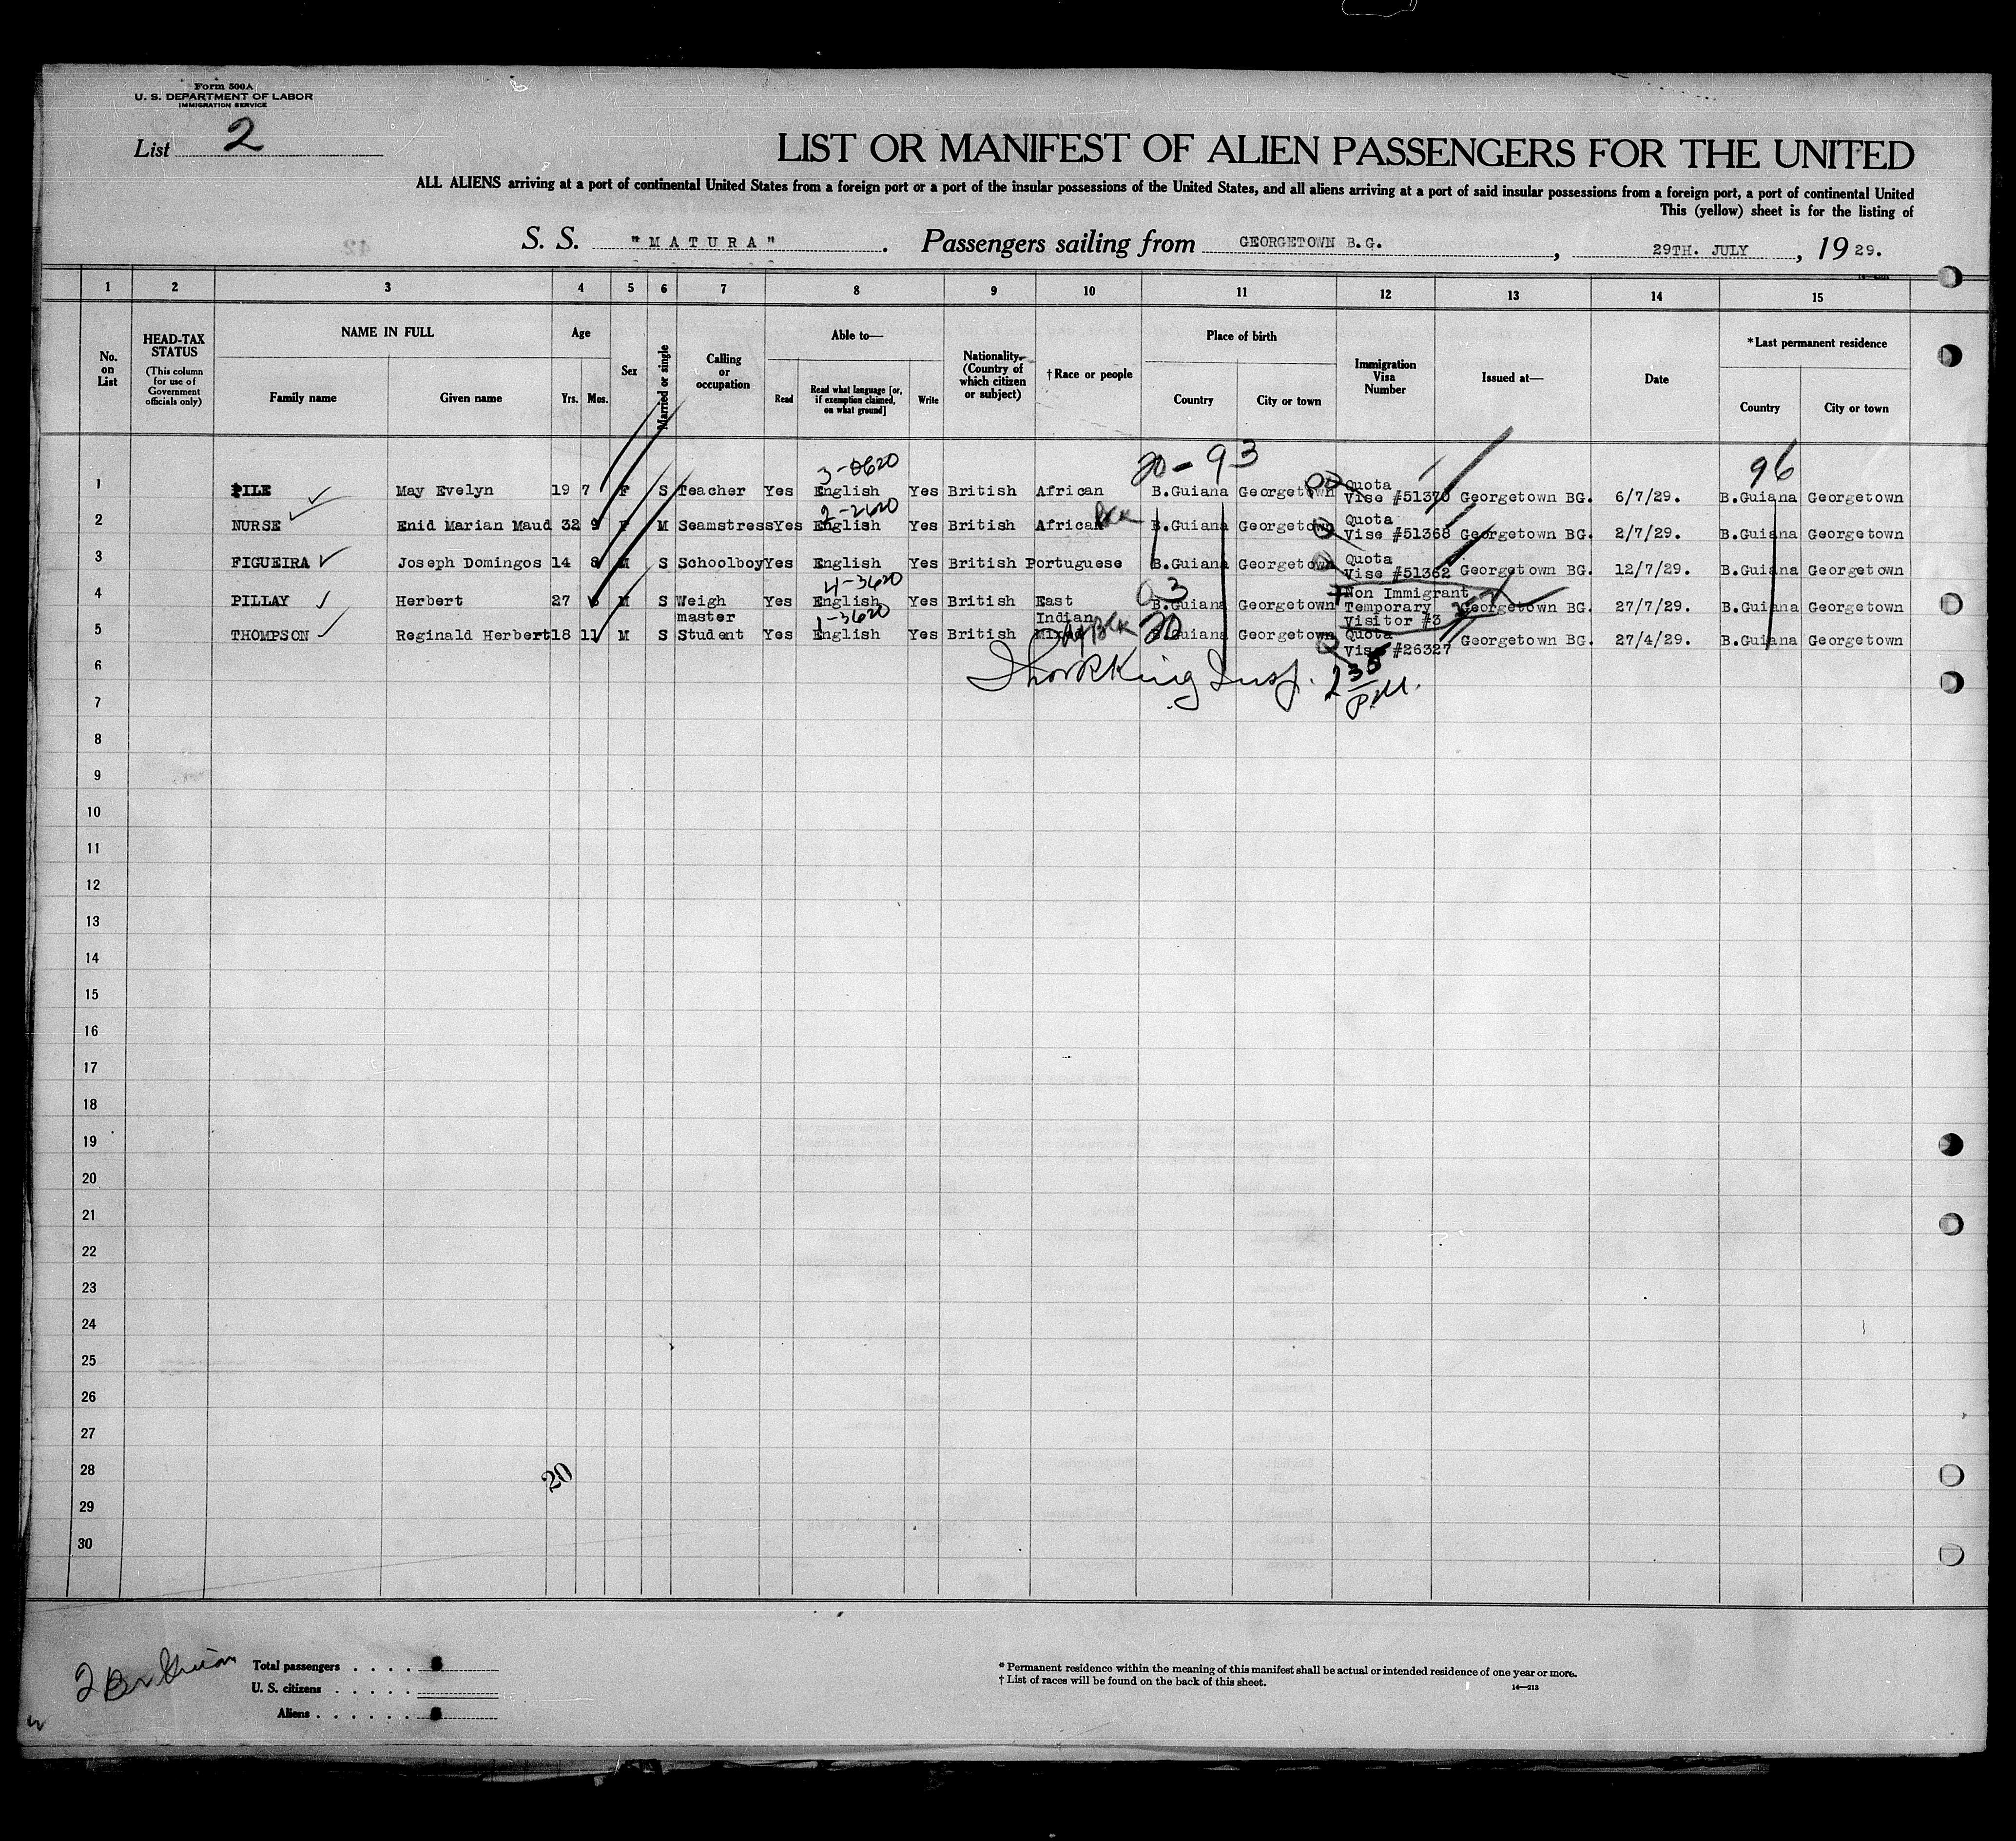 Form 500A
U. S. DEPARTMENT OF LABOR
IMMIGRATION SERVICE
List 2
LIST OR MANIFEST OF ALIEN PASSENGERS FOR THE UNITED
ALL ALIENS arriving at a port of continental United States from a foreign port or a port of the insular possessions of the United States, and all aliens arriving at a port of said insular possessions from a foreign port, a port of continental United
This (yellow) sheet is for the listing of
S. S. "MATURA". Passengers sailing from GEORGETOWN B.G., 29TH. JULY, 1929.
1 2 3 4 5 6 7 8 9 10 11 12 13 14 15
No. on List
HEAD-TAX STATUS (This column for use of Government officials only)
NAME IN FULL Family name Given name
Age Yrs. Mos.
Sex
Married or single
Calling or occupation
Able to— Read Read what language [or, if exemption claimed, on what ground] Write
Nationality. (Country of which citizen or subject)
†Race or people
Place of birth Country City or town
Immigration Visa Number
Issued at—
Date
*Last permanent residence Country City or town
20-93 96
1 PILE May Evelyn 19 7 F S Teacher Yes English Yes British African B.Guiana Georgetown Quota Vise #51370 Georgetown BG. 6/7/29. B.Guiana Georgetown
2-2620
2 NURSE Enid Marian Maud 32 9 F M Seamstress Yes English Yes British African B.Guiana Georgetown Quota Vise #51368 Georgetown BG. 2/7/29. B.Guiana Georgetown
3 FIGUEIRA Joseph Domingos 14 8 M S Schoolboy Yes English Yes British Portuguese B.Guiana Georgetown Quota Vise #51362 Georgetown BG. 12/7/29. B.Guiana Georgetown
4-3620 03
4 PILLAY Herbert 27 M S Weigh master Yes English Yes British East Indian B.Guiana Georgetown Non Immigrant Temporary visitor #3 Georgetown BG. 27/7/29. B.Guiana Georgetown
1-3620 20
5 THOMPSON Reginald Herbert 18 11 M S Student Yes English Yes British Mixed B.Guiana Georgetown Quota Vise #26327 Georgetown BG. 27/4/29. B.Guiana Georgetown
6
7
8
9
10
11
12
13
14
15
16
17
18
19
20
21
22
23
24
25
26
27
28 20
29
30
Total passengers
U. S. citizens
Aliens
* Permanent residence within the meaning of this manifest shall be actual or intended residence of one year or more.
† List of races will be found on the back of this sheet.
14—213